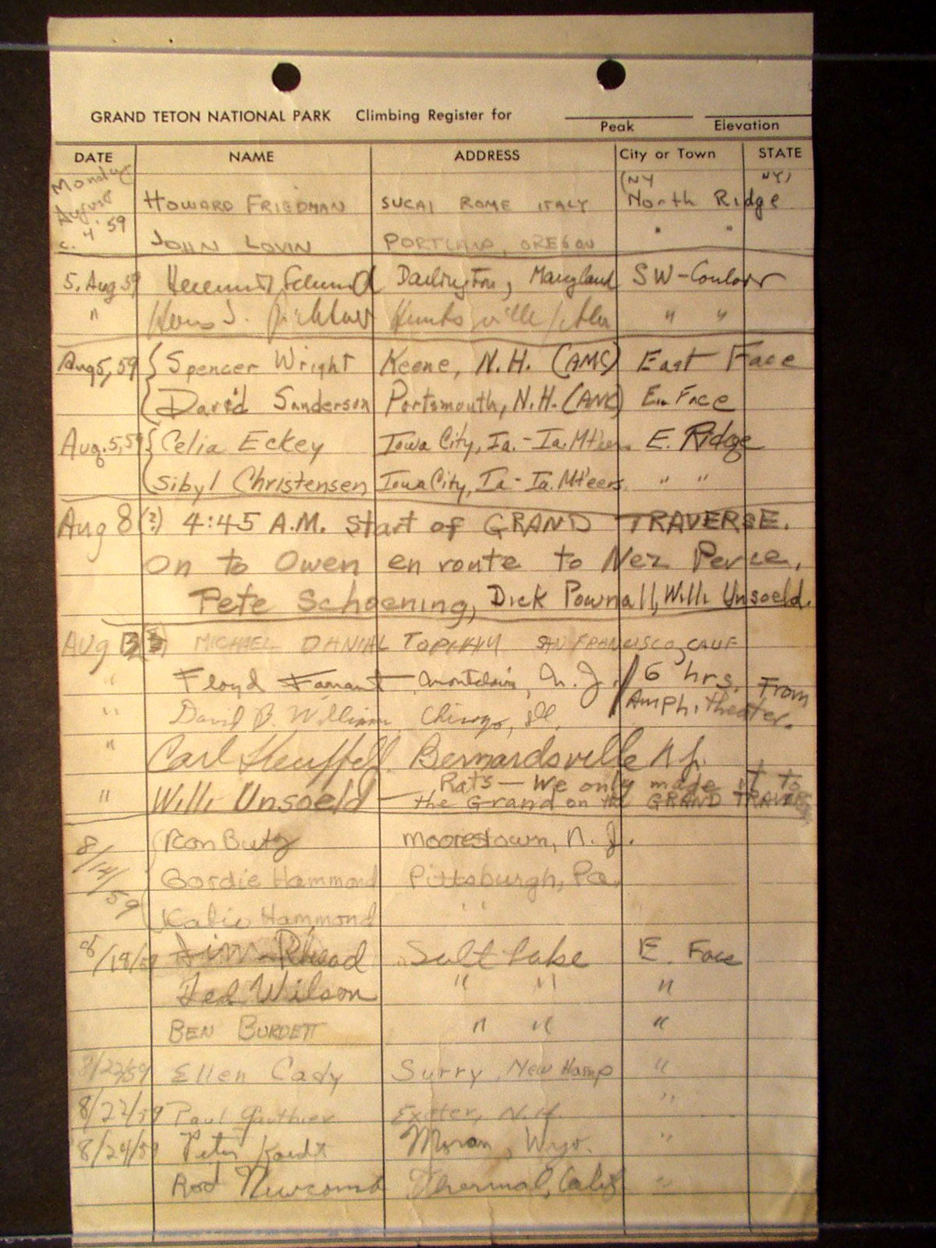 GRAND TETON NATIONAL PARK Climbing Register for
Peak Elevation
DATE NAME ADDRESS City or Town STATE
Monday (NY NY)
August HOWARD FRIEDMAN SUCAI ROME ITALY North Ridge
4 '59 JOHN LOVIN PORTLAND, OREGON " "
5. Aug 59 Darlington, Maryland SW-Couloir
" Hans J. " "
Aug 5, 59 { Spencer Wright Keene, N.H. (AMC) East Face
David Sanderson Portsmouth, N.H. (AMC) E. Face
Aug. 5, 59 { Celia Eckey Iowa City, Ia. - Ia. Mt'eers. E. Ridge
Sibyl Christensen Iowa City, Ia - Ia. Mt'eers. " "
Aug 8 (?) 4:45 A.M. Start of GRAND TRAVERSE.
on to Owen en route to Nez Perce.
Pete Schoening, Dick Pownall, Willi Unsoeld.
AUG MICHAEL DANIAL SAN FRANCISCO, CALIF
" Floyd Farrant Montclair, N.J. / 6 hrs. From
" David B. William Chicago, Ill. Amphitheater.
" Carl Bernardsville N.J.
" Willi Unsoeld — Rats — We only made it to
the Grand on the GRAND TRAVERSE
8/14/59 Ron Butz Moorestown, N.J.
Gordie Hammond Pittsburgh, Pa.
Katie Hammond " "
8/19/59 Jim Rhead Salt Lake E. Face
Ted Wilson " " "
BEN BURDETT " " "
8/22/59 Ellen Cady Surry, New Hamp "
8/22/59 Paul Gauthier Exeter, N.H. "
8/24/59 Peter Moran, Wyo. "
Rod Newcomb Thermal, Calif "